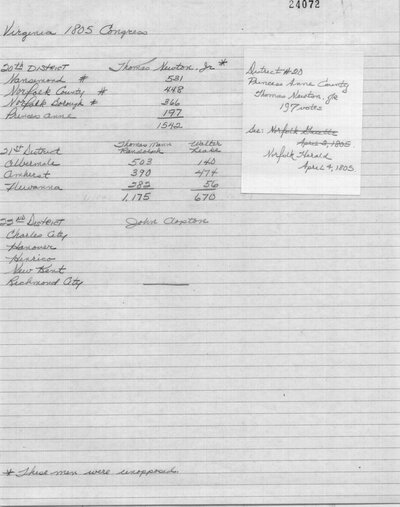 24072
Virginia 1805 Congress
20th District Thomas Newton, Jr *
Nansemond # 531
Norfolk County # 448
Norfolk Borough # 366
Princess Anne 197
1542
District #20
Princess Anne County
Thomas Newton, Jr
197 votes
See: Norfolk Gazette
April 3, 1805
Norfolk Herald
April 4, 1805.
21st District Thomas Mann Randolph Walter Leake
Albemarle 503 140
Amherst 390 474
Fluvanna 282 56
1,175 670
22nd District John Clopton
Charles City
Hanover
Henrico
New Kent
Richmond City
* These men were unopposed.